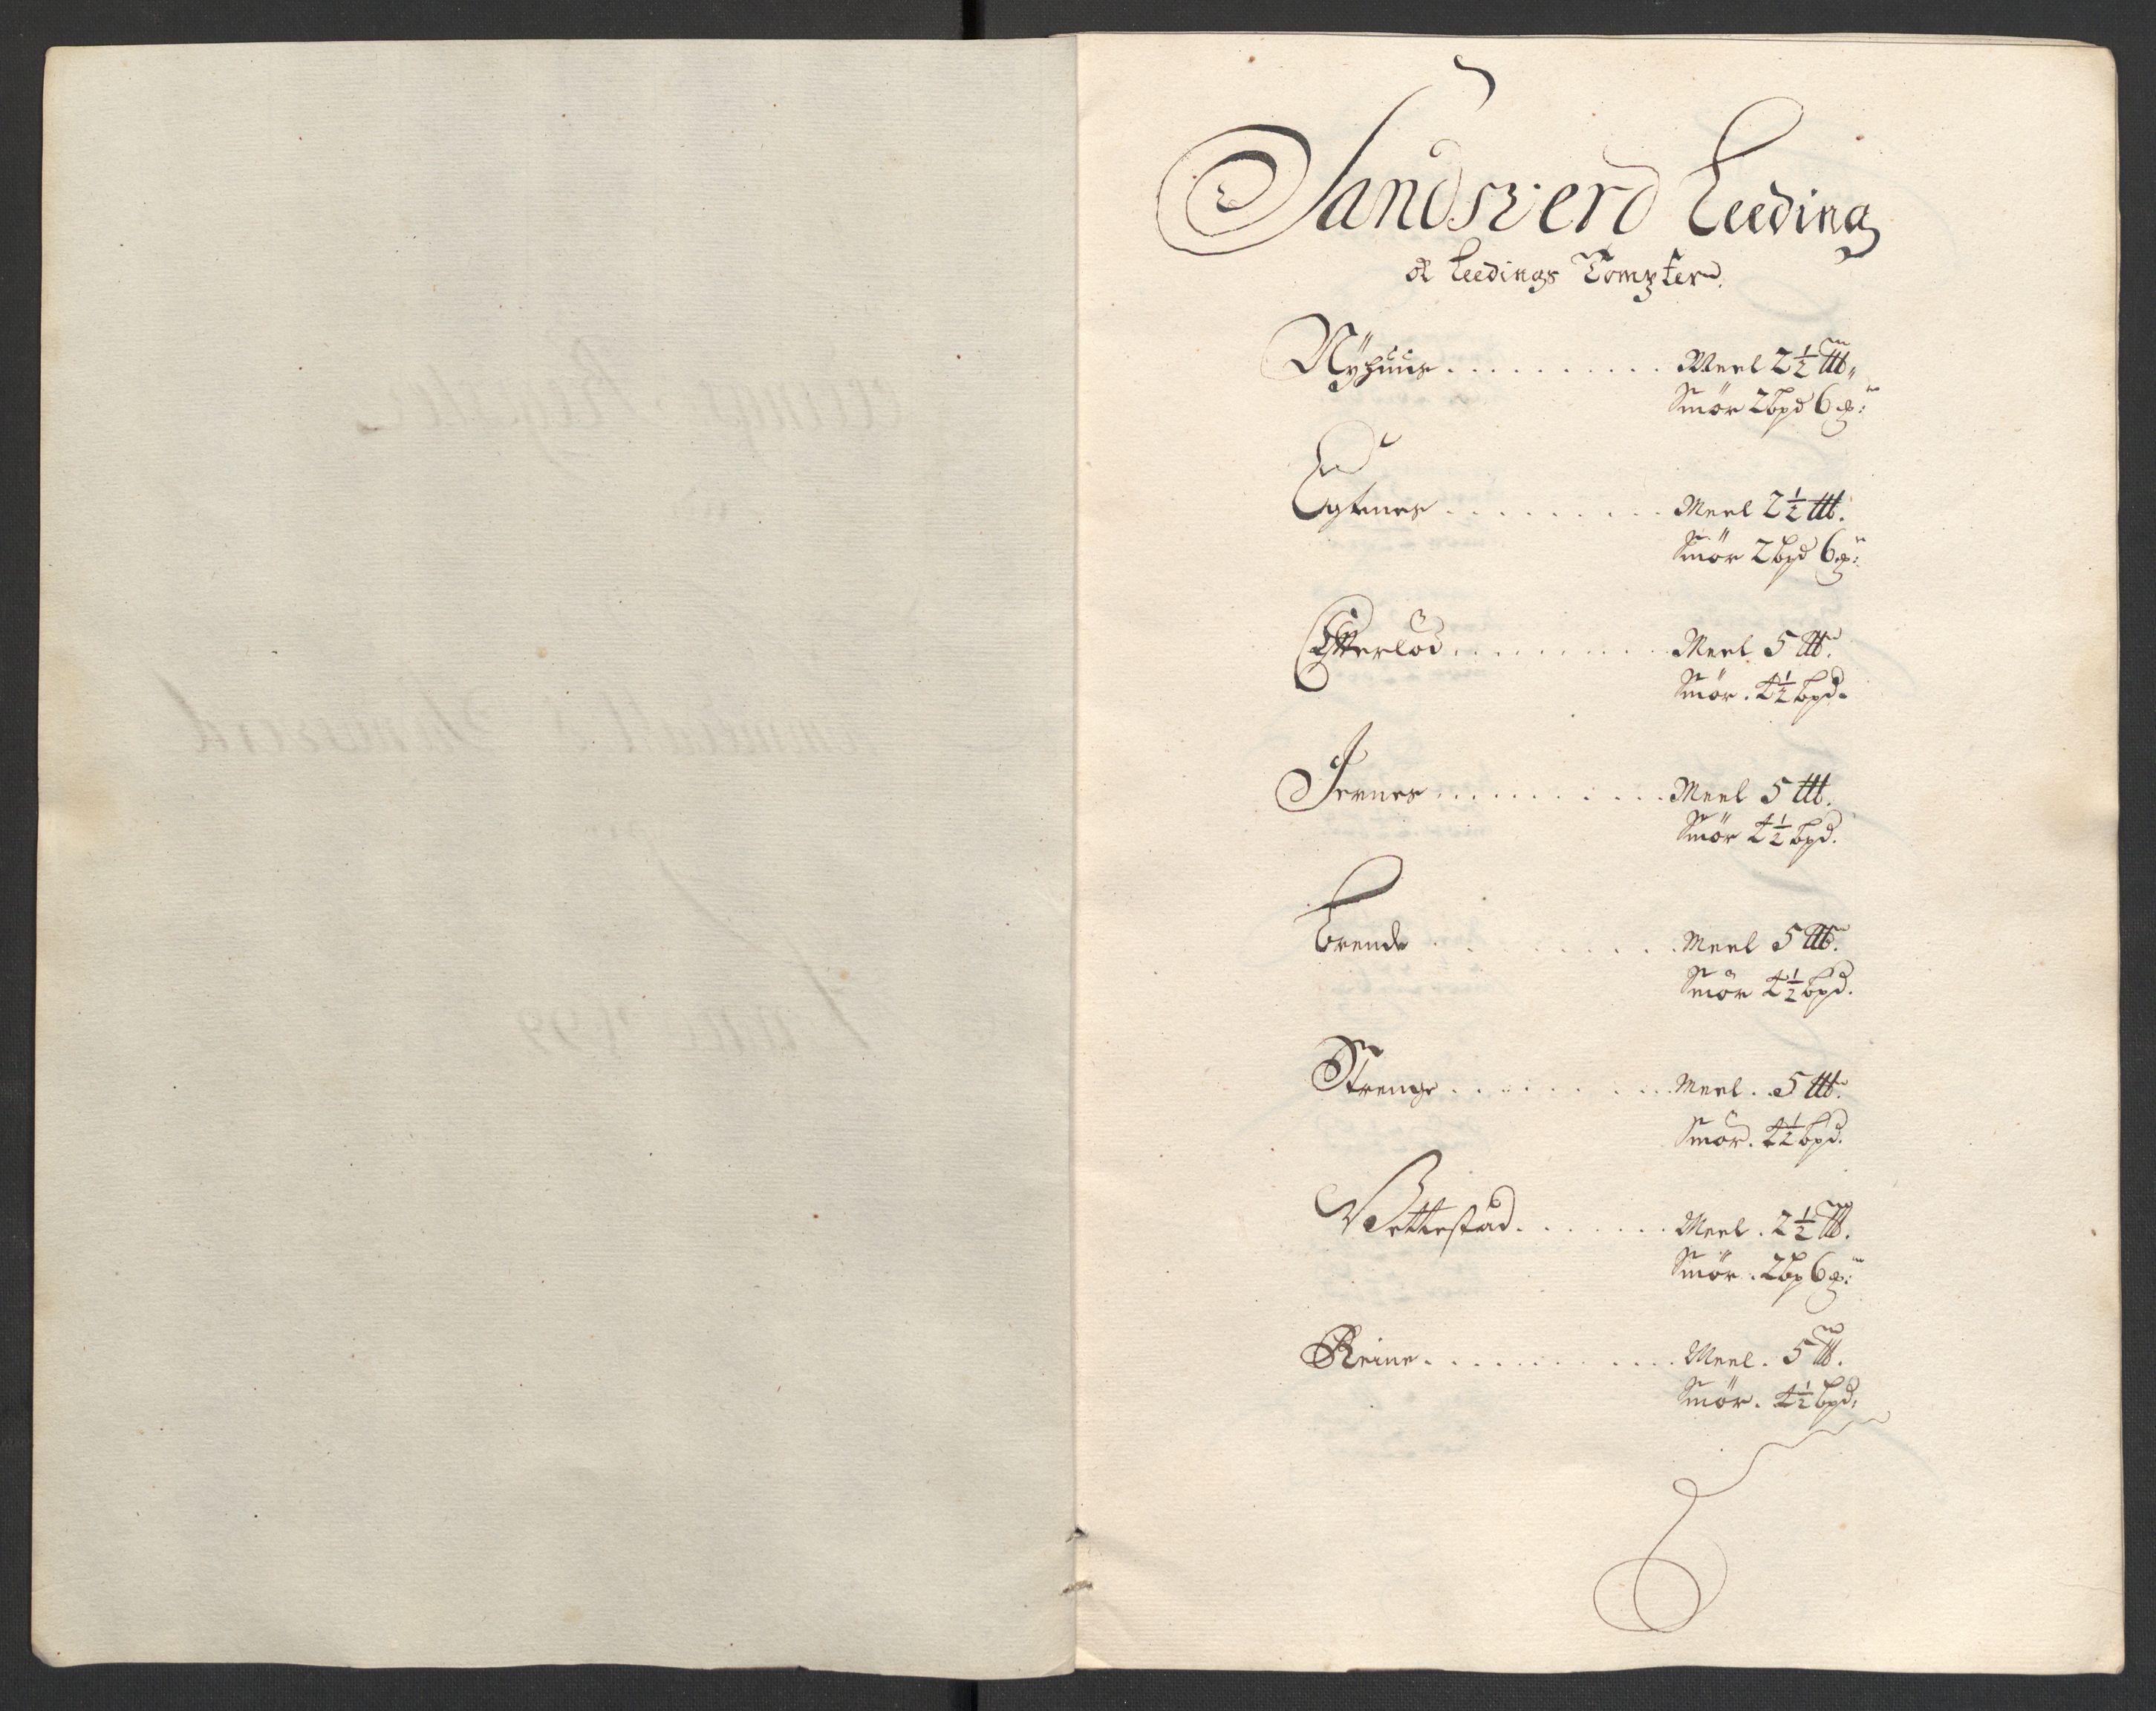 Sandsverd Leeding
oc Leedings Tompter.
Nÿhuus . . . . . . . . . . Meel 2½ ℔
Smör 2bpd 6 ℳ:
Egtnes . . . . . . . . . Meel 2½ ℔.
Smör 2bpd 6 ℳ:
Efterlöd . . . . . . . . . Meel 5 ℔.
Smör. 4½ bpd.
Jernes . . . . . . . . . . Meel 5 ℔.
Smör 4½ bpd.
Brende . . . . . . . . Meel 5 ℔.
Smör 4½ bpd.
Strenge . . . . . . . . . Meel. 5 ℔.
Smör. 4½ bpd.
Vettestad . . . . . . . Meel. 2½ ℔.
Smör. 2bp 6 ℳ:
Reine . . . . . . . . . . . Meel. 5 ℔.
Smör. 4½ bpd: